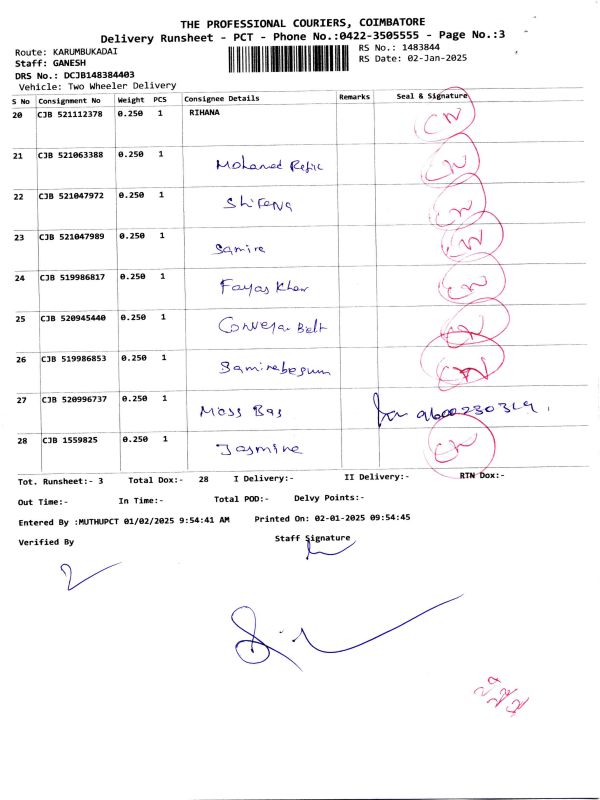 THE PROFESSIONAL COURIERS, COIMBATORE
Delivery Runsheet - PCT - Phone No.:0422-3505555 - Page No.:3
Route: KARUMBUKADAI
RS No.: 1483844
Staff: GANESH
RS Date: 02-Jan-2025
DRS No.: DCJB148384403
Vehicle: Two Wheeler Delivery
S No Consignment No Weight PCS Consignee Details Remarks Seal & Signature
20 CJB 521112378 0.250 1 RIHANA CN
21 CJB 521063388 0.250 1 Mohamed Refic CN
22 CJB 521047972 0.250 1 Shifana CN
23 CJB 521047989 0.250 1 Samira CN
24 CJB 519986817 0.250 1 Fayas Khan CN
25 CJB 520945440 0.250 1 Conveyar Belt CN
26 CJB 519986853 0.250 1 Samirabegum CN
27 CJB 520996737 0.250 1 Moss Bas 9600230319.
28 CJB 1559825 0.250 1 Jasmine CN
Tot. Runsheet:- 3 Total Dox:- 28 I Delivery:- II Delivery:- RTN Dox:-
Out Time:- In Time:- Total POD:- Delvy Points:-
Entered By :MUTHUPCT 01/02/2025 9:54:41 AM Printed On: 02-01-2025 09:54:45
Verified By Staff Signature